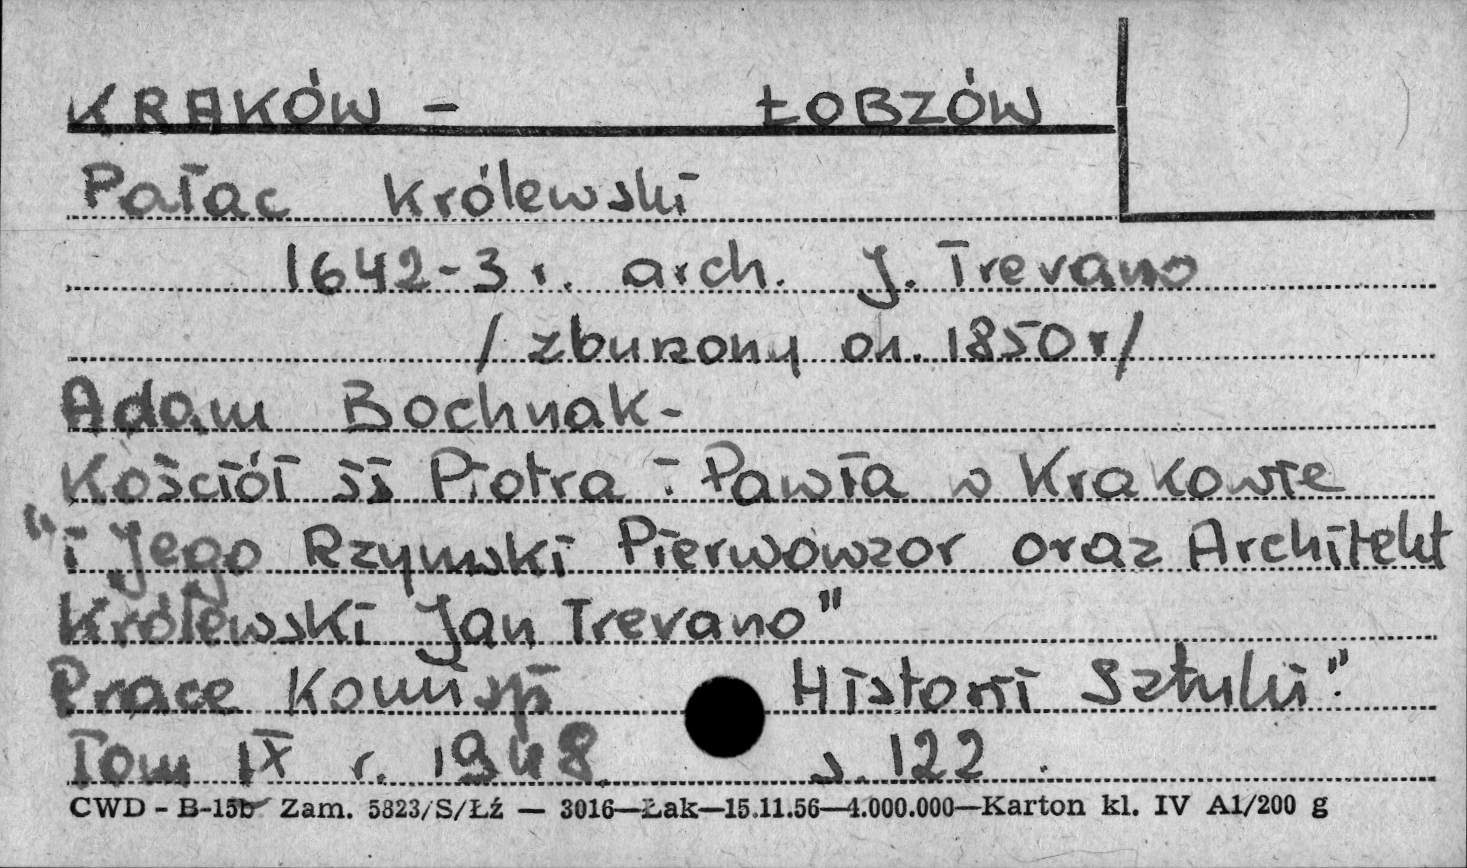 KRAKÓW - ŁOBZÓW
Pałac Królewski
1642-3 r. arch. J. Trevano
/ zburzony ok. 1850 r/
Adam Bochnak-
Kościół ŚŚ Piotra i Pawła w Krakowie
"i Jego Rzymski Pierwowzor oraz Architekt
Królewski Jan Trevano"
Prace Komisji Historii Sztuki".
Tom IX r. 1948 s. 122.
CWD - B-15b Zam. 5823/S/Łź — 3016—Łak—15.11.56—4.000.000—Karton kl. IV A1/200 g